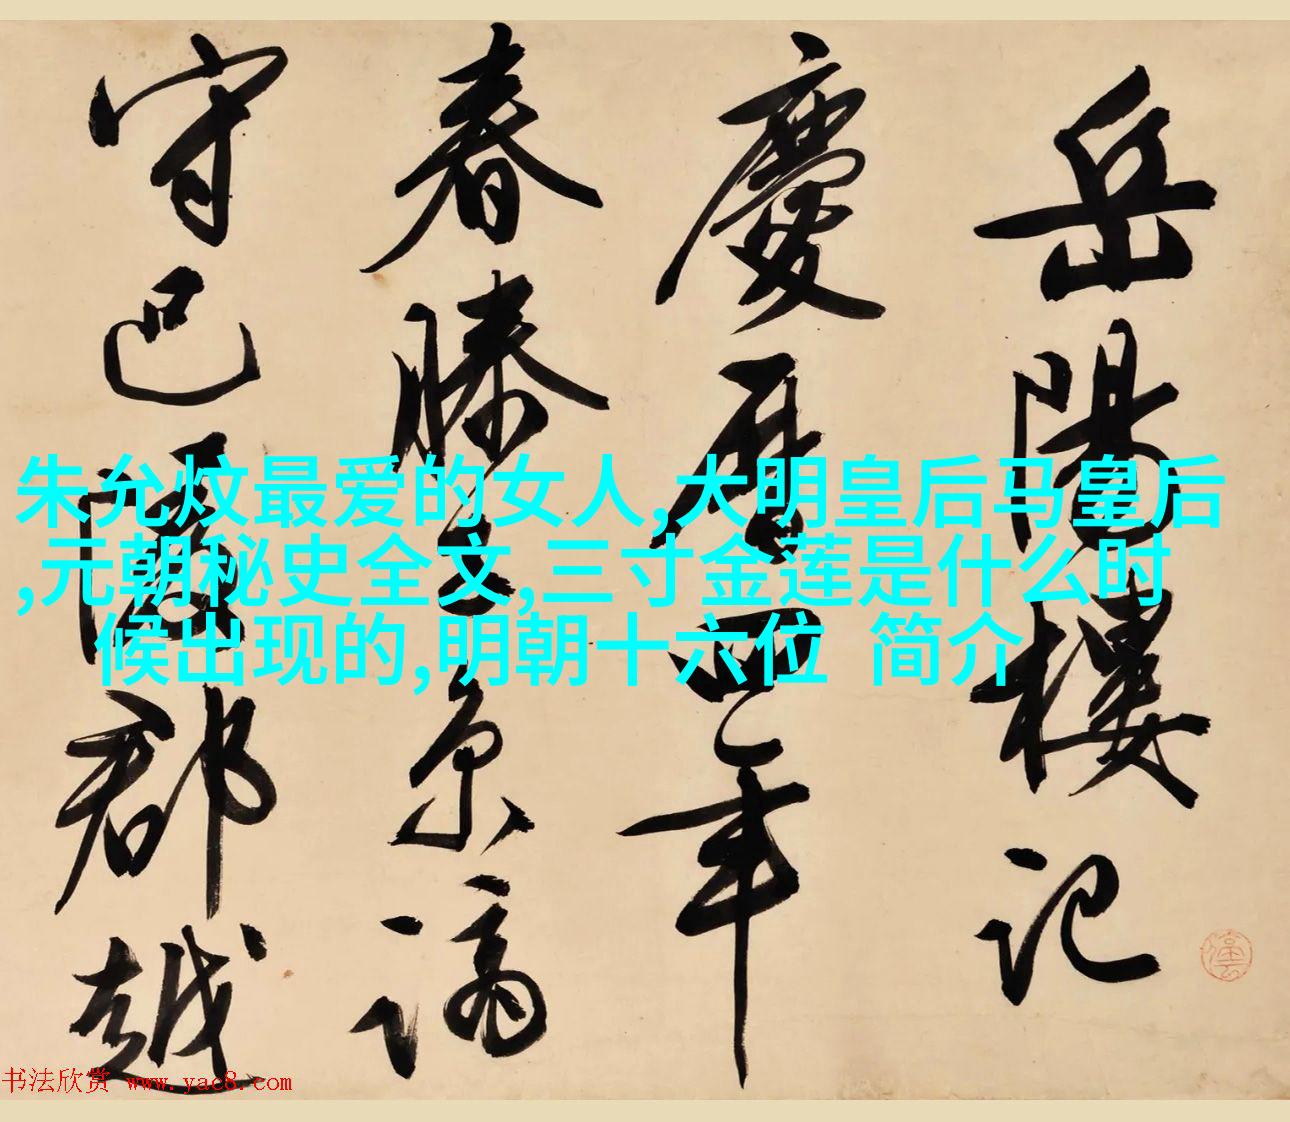 岳陽樓記
慶曆四年
春滕子京謫
守巴陵郡越
朱允炆最爱的女人,大明皇后马皇后
,元朝秘史全文,三寸金莲是什么时
候出现的,明朝十六位 简介
书法欣赏 www.yac8.com